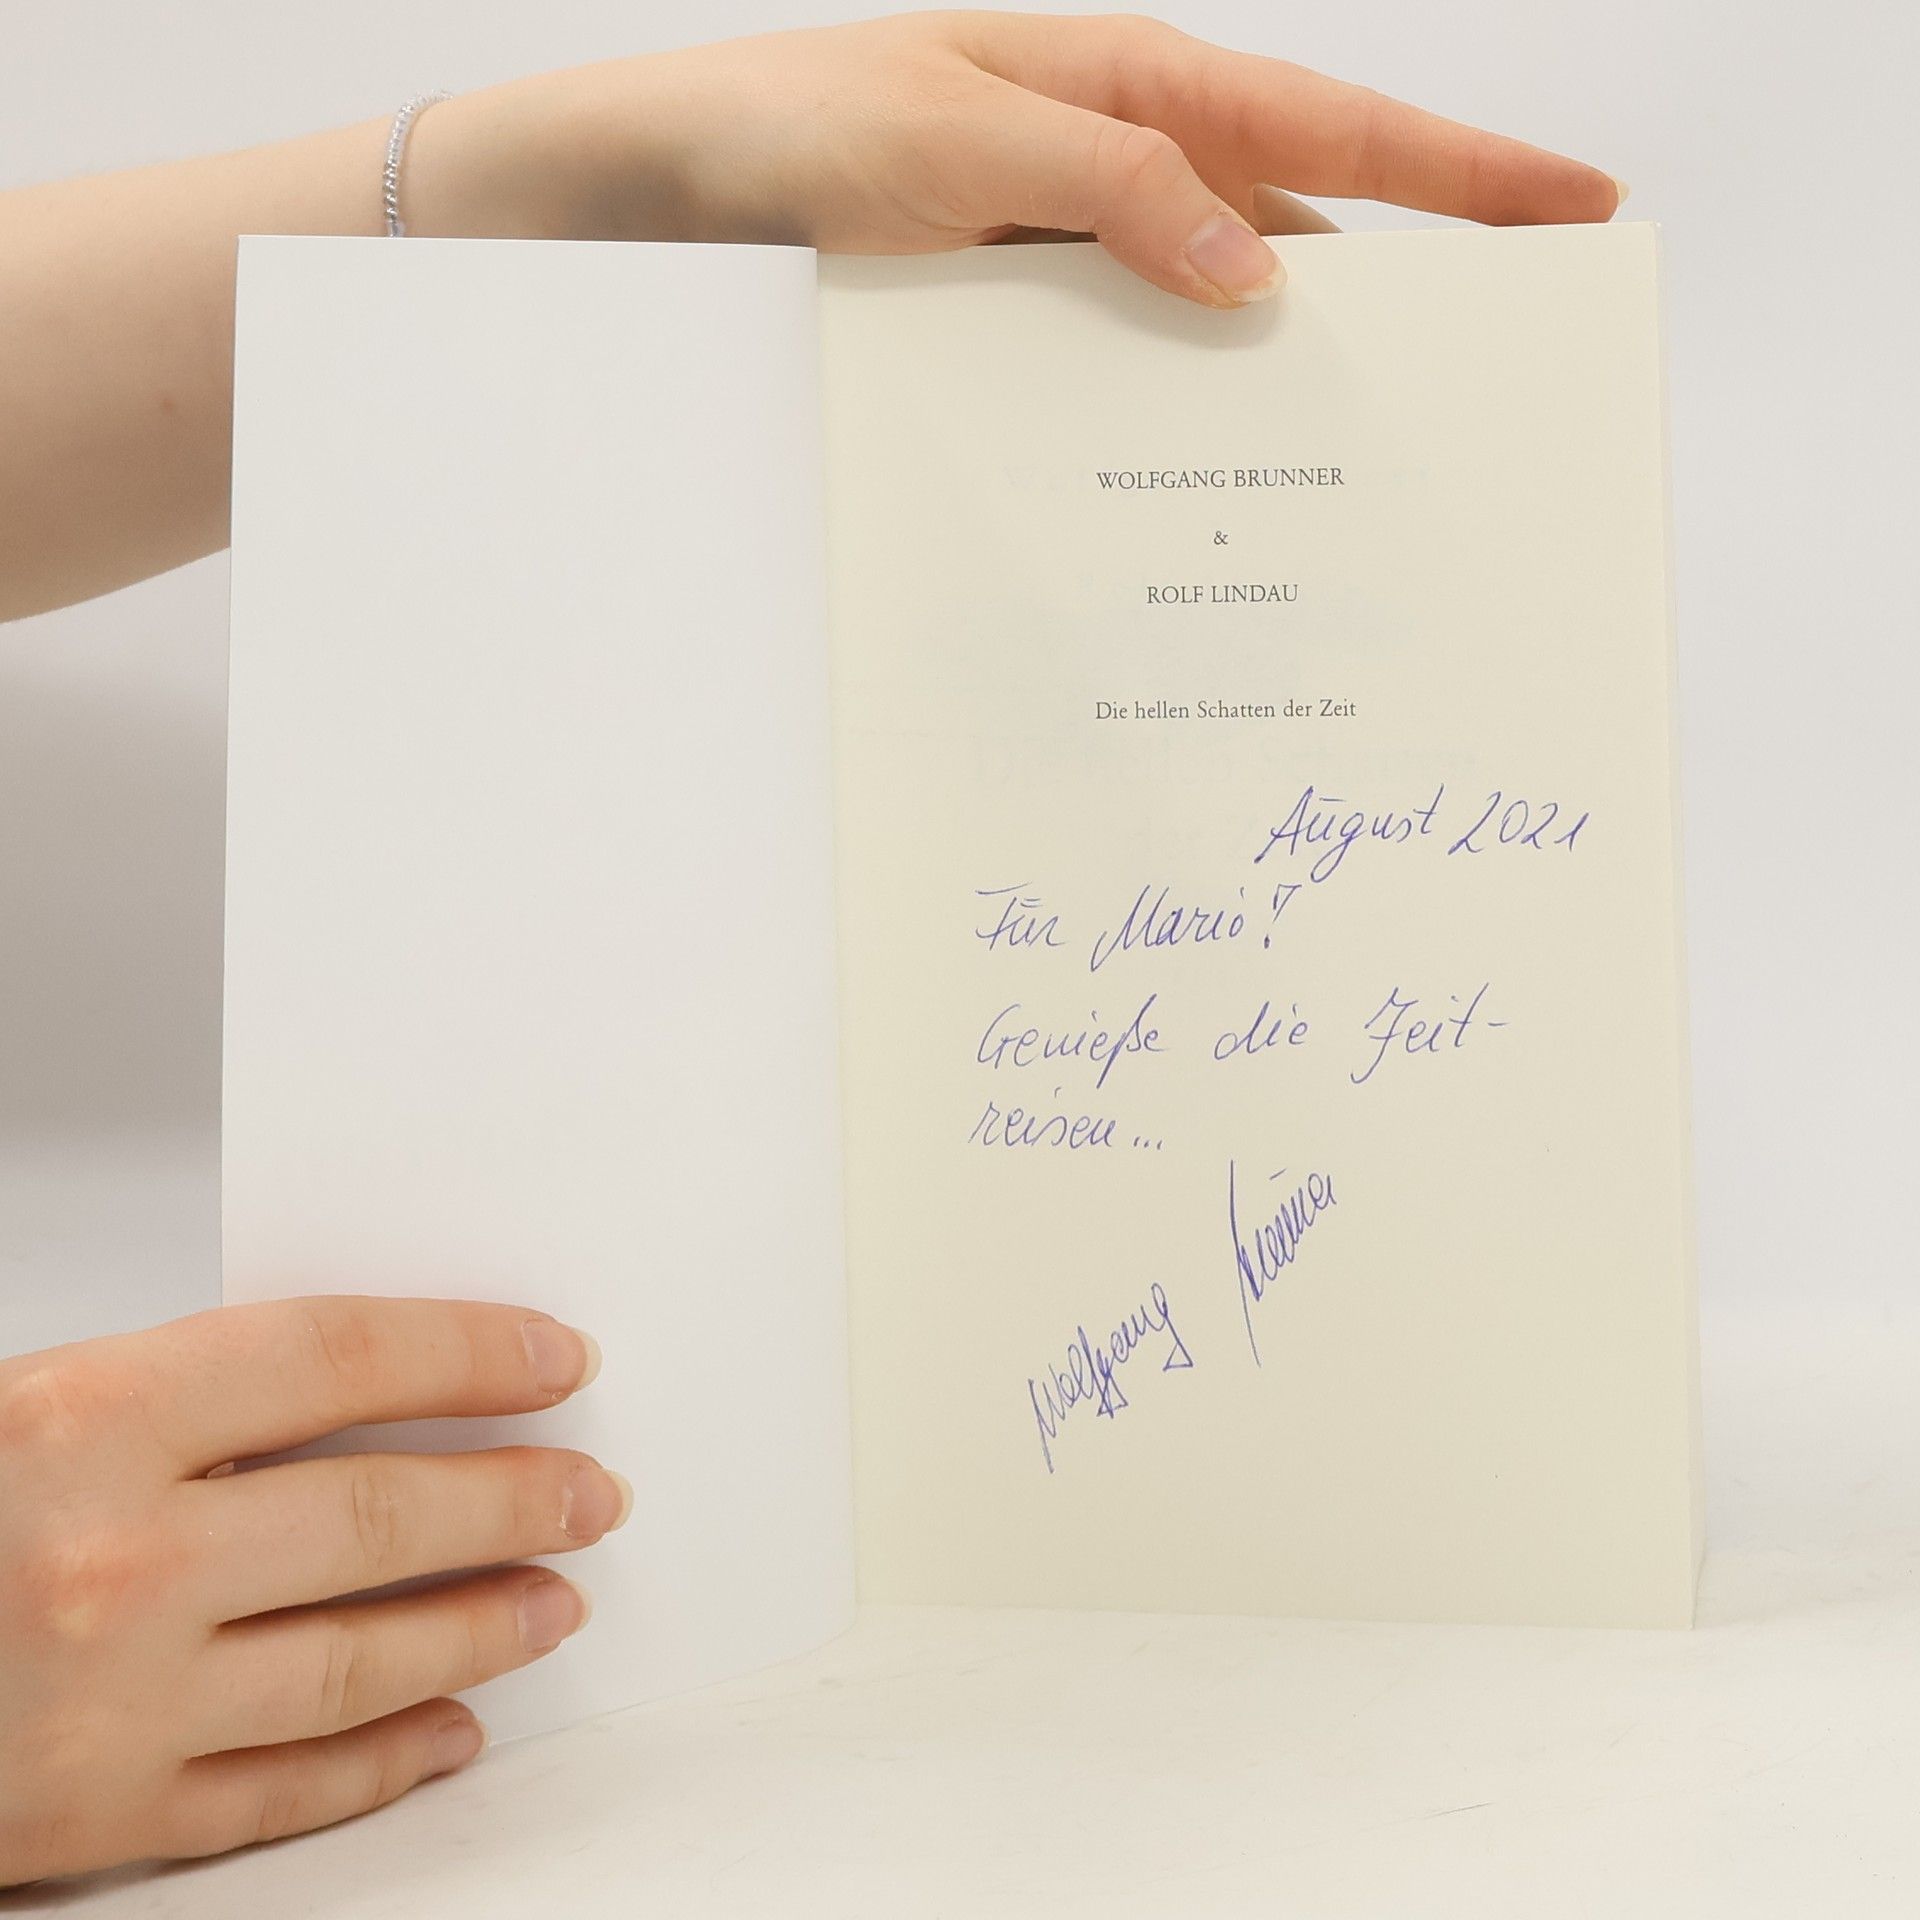 WOLFGANG BRUNNER
&
ROLF LINDAU
Die hellen Schatten der Zeit
August 2021
Für Mario!
Genieße die Zeit-
reisen...
Wolfgang Brunner